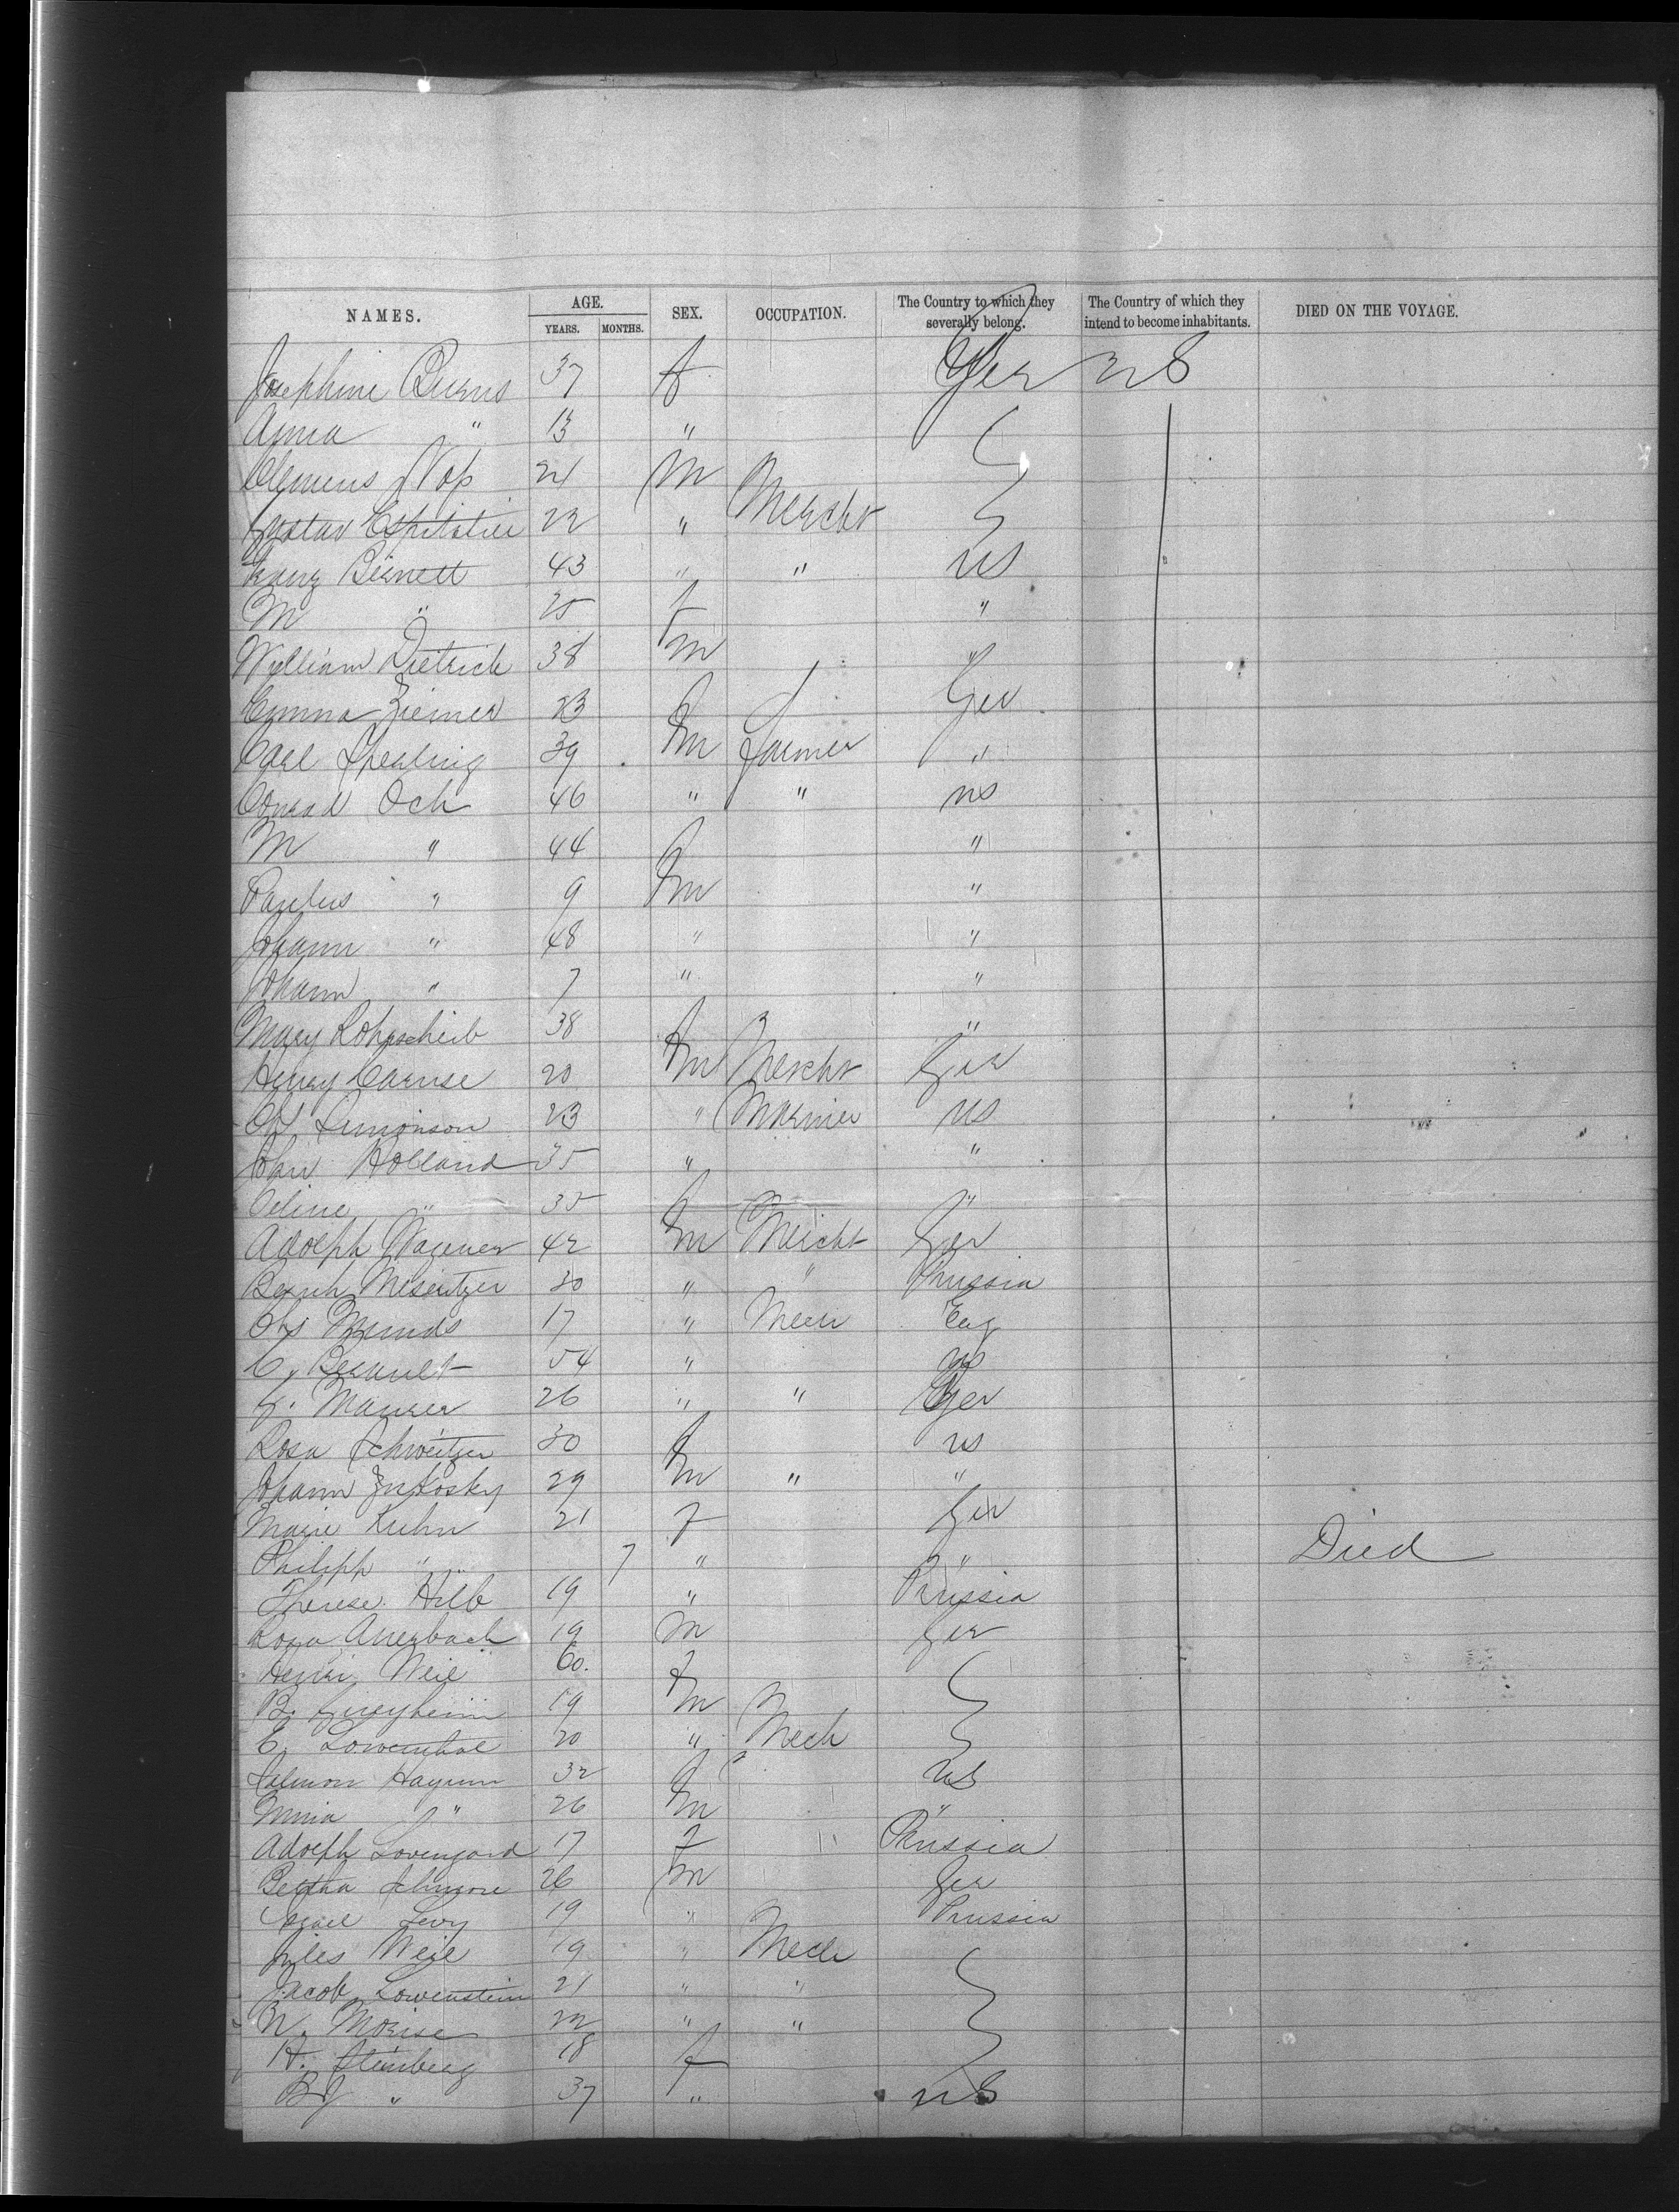 NAMES. AGE. SEX. OCCUPATION. The Country to which they severally belong. The Country of which they intend to become inhabitants. DIED ON THE VOYAGE.
YEARS. MONTHS.
Josephine Burns 37 f Ger US
Anna " 13 "
Clemens Nop 24 M
Gustav Espitatier 22 " Mercht
Franz Bernett 43 " " US
M " 25 f "
William Dietrich 38 M "
Emma Ziemer 23 f Ger
Carl Sperling 39 m Farmer "
Conrad Och 46 " " US
M " 44 f "
Paulus " 9 m "
Johann " 48 " "
Johann " 7 " "
Mary 38 f "
Henry Caruse 20 m Mercht Ger
Chs Simonson 23 " Mariner US
John Holland 35 " "
Celine " 35 f "
Adolph Wagener 42 m Mercht Ger
Meseritzer 30 " " Prussia
Chs 17 " Mech Eng
C. Berault 54 " US
G. Maurer 26 " " Ger
Rosa Schweitzer 30 f US
Johann 29 m " "
Marie Kuhn 21 f Ger
Philipp " 7 " " Died
Therese Hilb 19 " Prussia
Rosa Auerbach 19 M Ger
Henri Weil 60. f
B. 19 m
E. Lowenthal 20 " Mech
Salmon Hayum 32 f US
Mina " 26 m "
Adolph Lovengard 17 f " Prussia
Bertha 26 m Ger
Israel Levy 19 " Prussia
Jules Weil 19 " Mech
Jacob Lowenstein 21 " "
N. Morise 22 " "
H. Steinberg 18 f
" 37 " US